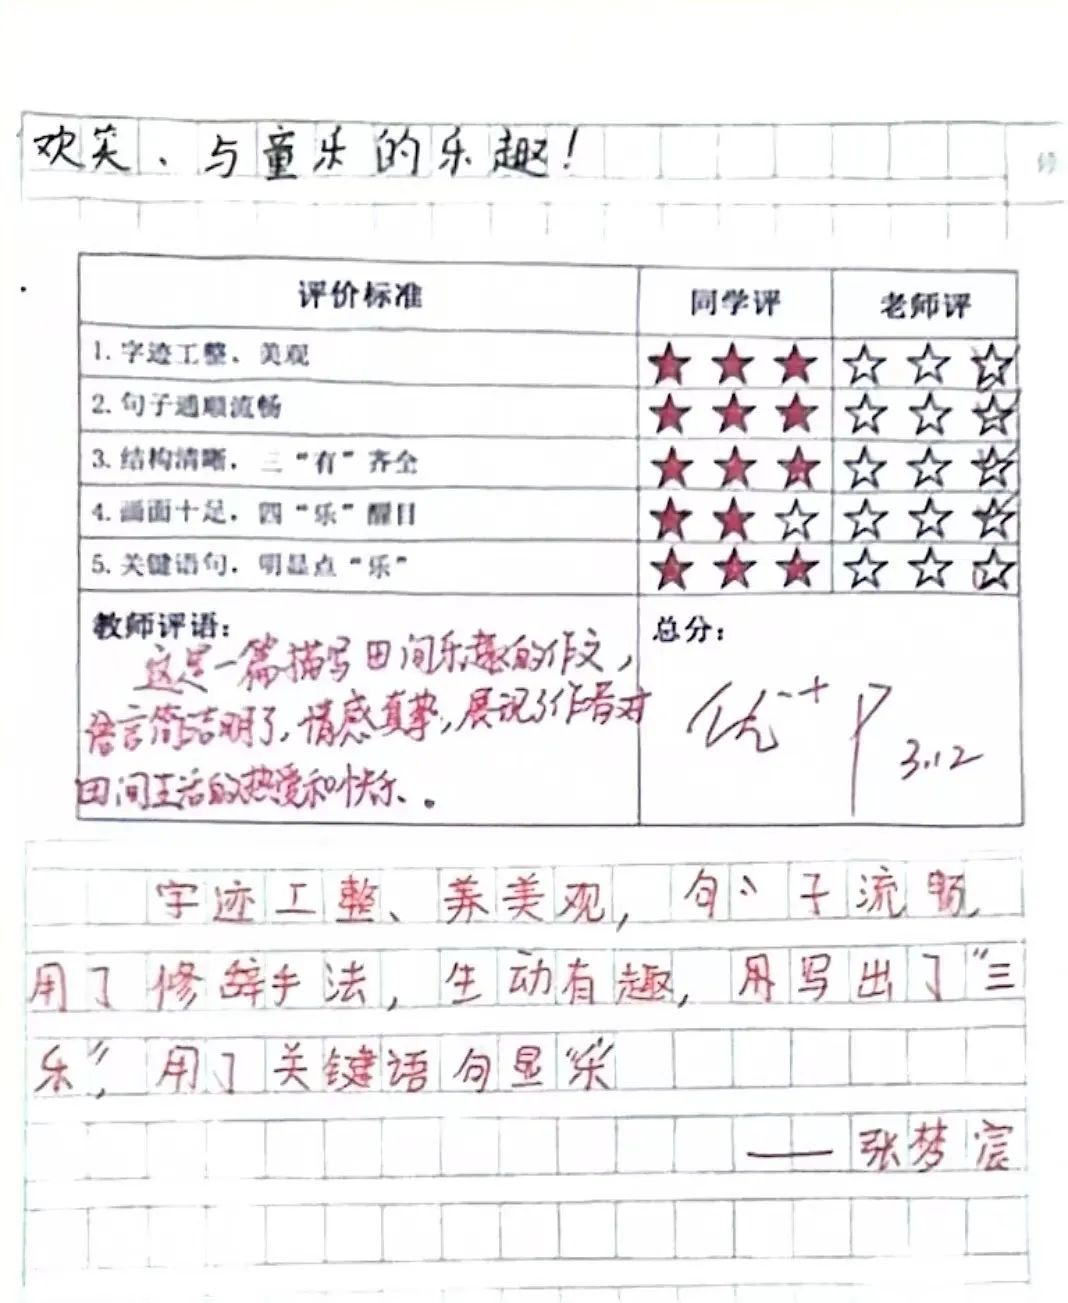 欢笑、与童乐的乐趣！
评价标准 同学评 老师评
1. 字迹工整、美观 ★★★ ☆☆☆
2. 句子通顺流畅 ★★★ ☆☆☆
3. 结构清晰，三“有”齐全 ★★★ ☆☆☆
4. 画面十足，四“乐”醒目 ★★☆ ☆☆☆
5. 关键语句，明显点“乐” ★★★ ☆☆☆
教师评语：
这是一篇描写田间乐趣的作文，
语言简洁明了，情感真挚，展现了作者对
田间生活的热爱和快乐。
总分：
优-+
3.12
字迹工整、养美观，句子流畅，
用了修辞手法，生动有趣，用写出了“三
乐”，用了关键语句显“乐”
——张梦宸